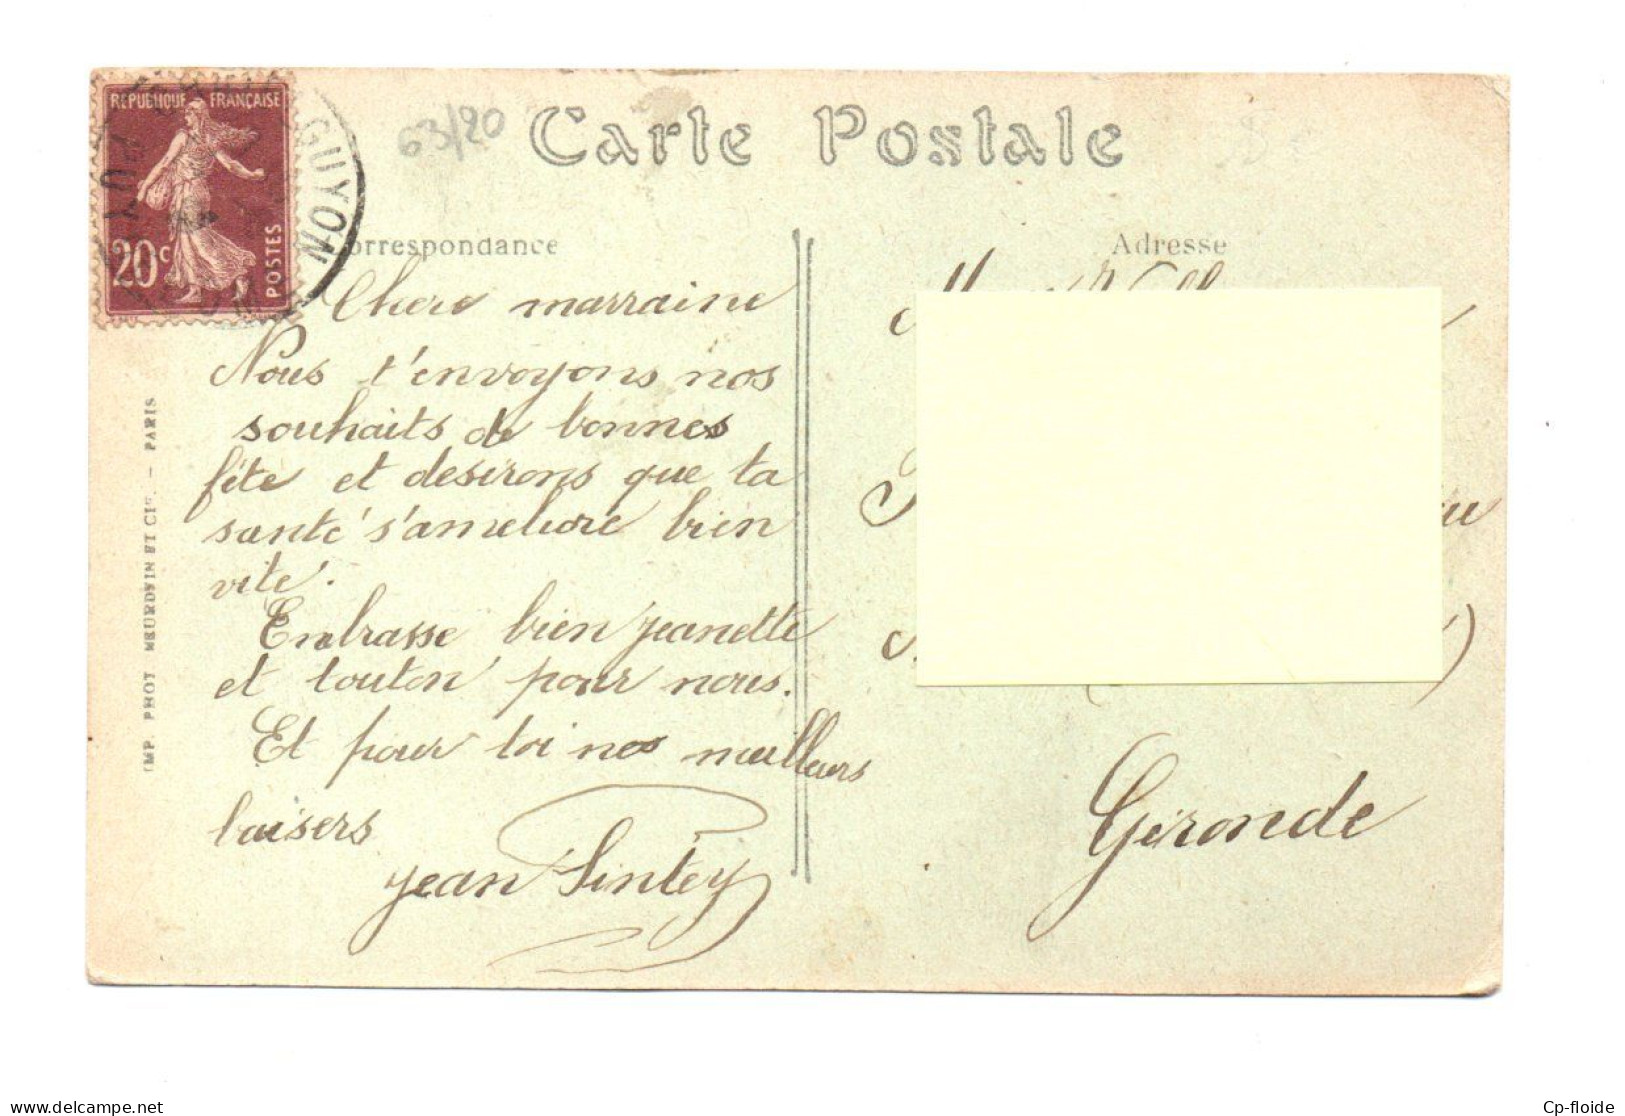 REPUBLIQUE FRANÇAISE
20c
POSTES
GUYON
63/20
Carte Postale
orrespondance
Adresse
Chere marraine
Nous t'envoyons nos
souhaits de bonnes
fête et desirons que ta
santé s'ameliore bien
vite.
Embrasse bien jeanette
et touton pour nous.
Et pour toi nos meilleurs
baisers
jean Pintey
Gironde
IMP. PHOT MEURDVIN ET CIE. – PARIS
Cp-floide